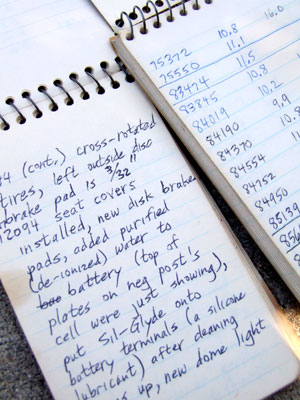 (cont.) cross-rotated
tires, left outside disc
brake pad is 3/32"
12094 seat covers
installed, new disk brake
pads, added purified
(de-ionized) water to
battery (top of
plates on neg post's
cell were just showing),
put Sil-Glyde onto
battery terminals (a silicone
lubricant) after cleaning
up, new dome light
75372 10.8 16.0
75550 11.1
83474 11.5
83845 10.8
84019 10.2
84190 9.9
84370 10.8
84554
84752
84950
85139